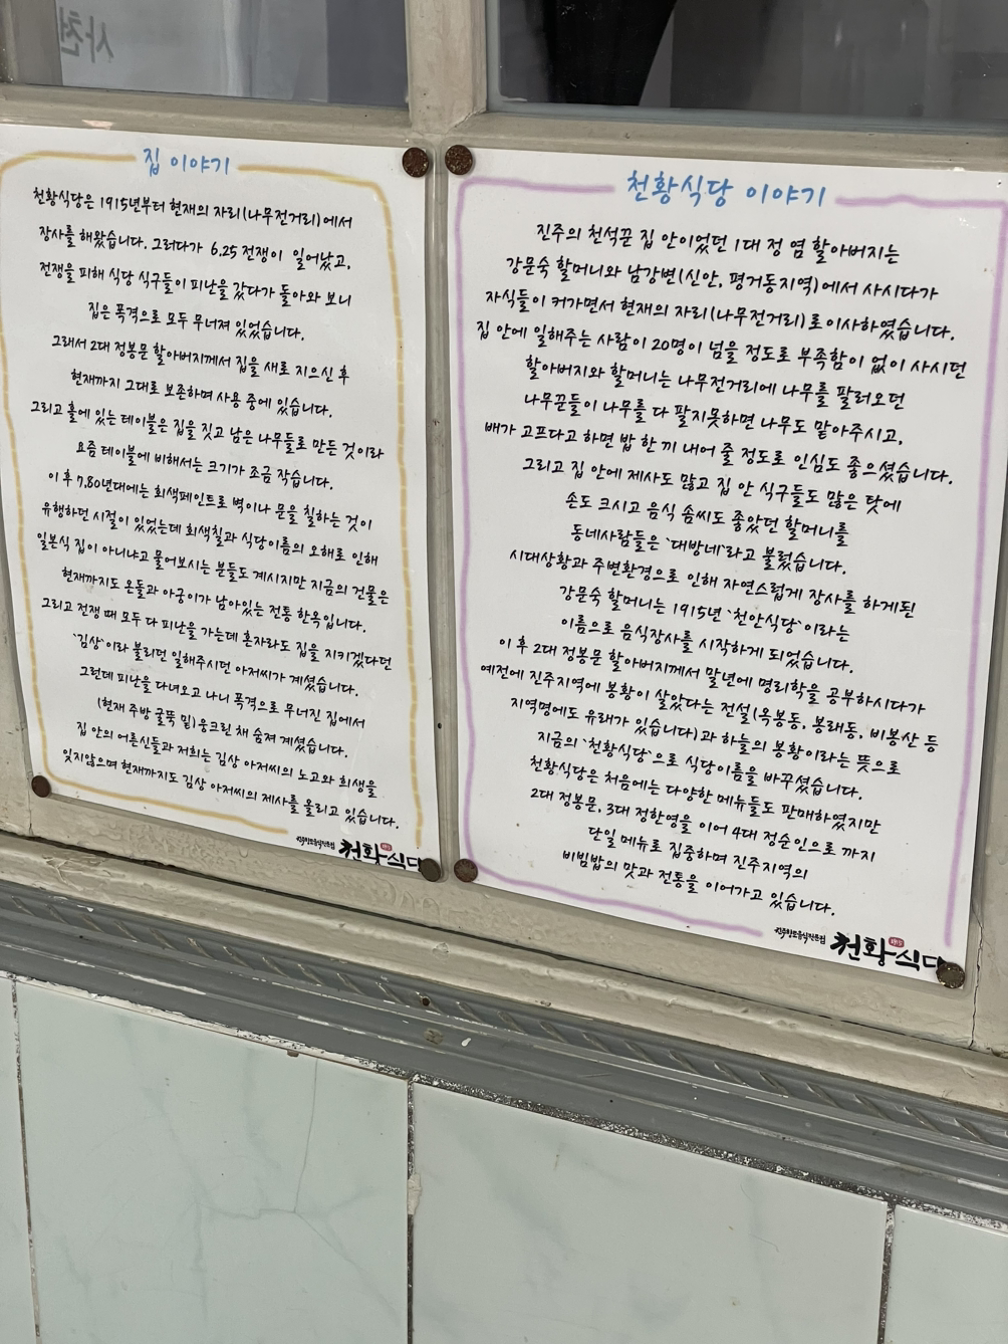 집 이야기
천황식당은 1915년부터 현재의 자리(나무전거리)에서
장사를 해왔습니다. 그러다가 6.25 전쟁이 일어났고,
전쟁을 피해 식당 식구들이 피난을 갔다가 돌아와 보니
집은 폭격으로 모두 무너져 있었습니다.
그래서 2대 정봉문 할아버지께서 집을 새로 지으신 후
현재까지 그대로 보존하며 사용 중에 있습니다.
그리고 홀에 있는 테이블은 집을 짓고 남은 나무들로 만든 것이라
요즘 테이블에 비해서는 크기가 조금 작습니다.
이 후 7,80년대에는 회색페인트로 벽이나 문을 칠하는 것이
유행하던 시절이 있었는데 회색칠과 식당이름의 오해로 인해
일본식 집이 아니냐고 물어보시는 분들도 계시지만 지금의 건물은
현재까지도 온돌과 아궁이가 남아있는 전통 한옥입니다.
그리고 전쟁 때 모두 다 피난을 가는데 혼자라도 집을 지키겠다던
`김상`이라 불리던 일해주시던 아저씨가 계셨습니다.
그런데 피난을 다녀오고 나니 폭격으로 무너진 집에서
(현재 주방 굴뚝 밑)웅크린 채 숨져 계셨습니다.
집 안의 어른신들과 저희는 김상 아저씨의 노고와 희생을
잊지않으며 현재까지도 김상 아저씨의 제사를 올리고 있습니다.
천황식당
천황식당 이야기
진주의 천석꾼 집 안이었던 1대 정 염 할아버지는
강문숙 할머니와 남강변(신안, 평거동지역)에서 사시다가
자식들이 커가면서 현재의 자리(나무전거리)로 이사하였습니다.
집 안에 일해주는 사람이 20명이 넘을 정도로 부족함이 없이 사시던
할아버지와 할머니는 나무전거리에 나무를 팔러오던
나무꾼들이 나무를 다 팔지못하면 나무도 맡아주시고,
배가 고프다고 하면 밥 한 끼 내어 줄 정도로 인심도 좋으셨습니다.
그리고 집 안에 제사도 많고 집 안 식구들도 많은 탓에
손도 크시고 음식 솜씨도 좋았던 할머니를
동네사람들은 `대방네`라고 불렀습니다.
시대상황과 주변환경으로 인해 자연스럽게 장사를 하게된
강문숙 할머니는 1915년 `천안식당`이라는
이름으로 음식장사를 시작하게 되었습니다.
이 후 2대 정봉문 할아버지께서 말년에 명리학을 공부하시다가
예전에 진주지역에 봉황이 살았다는 전설(옥봉동, 봉래동, 비봉산 등
지역명에도 유래가 있습니다)과 하늘의 봉황이라는 뜻으로
지금의 `천황식당`으로 식당이름을 바꾸셨습니다.
천황식당은 처음에는 다양한 메뉴들도 판매하였지만
2대 정봉문, 3대 정한영을 이어 4대 정순인으로 까지
단일 메뉴로 집중하며 진주지역의
비빔밥의 맛과 전통을 이어가고 있습니다.
천황식당